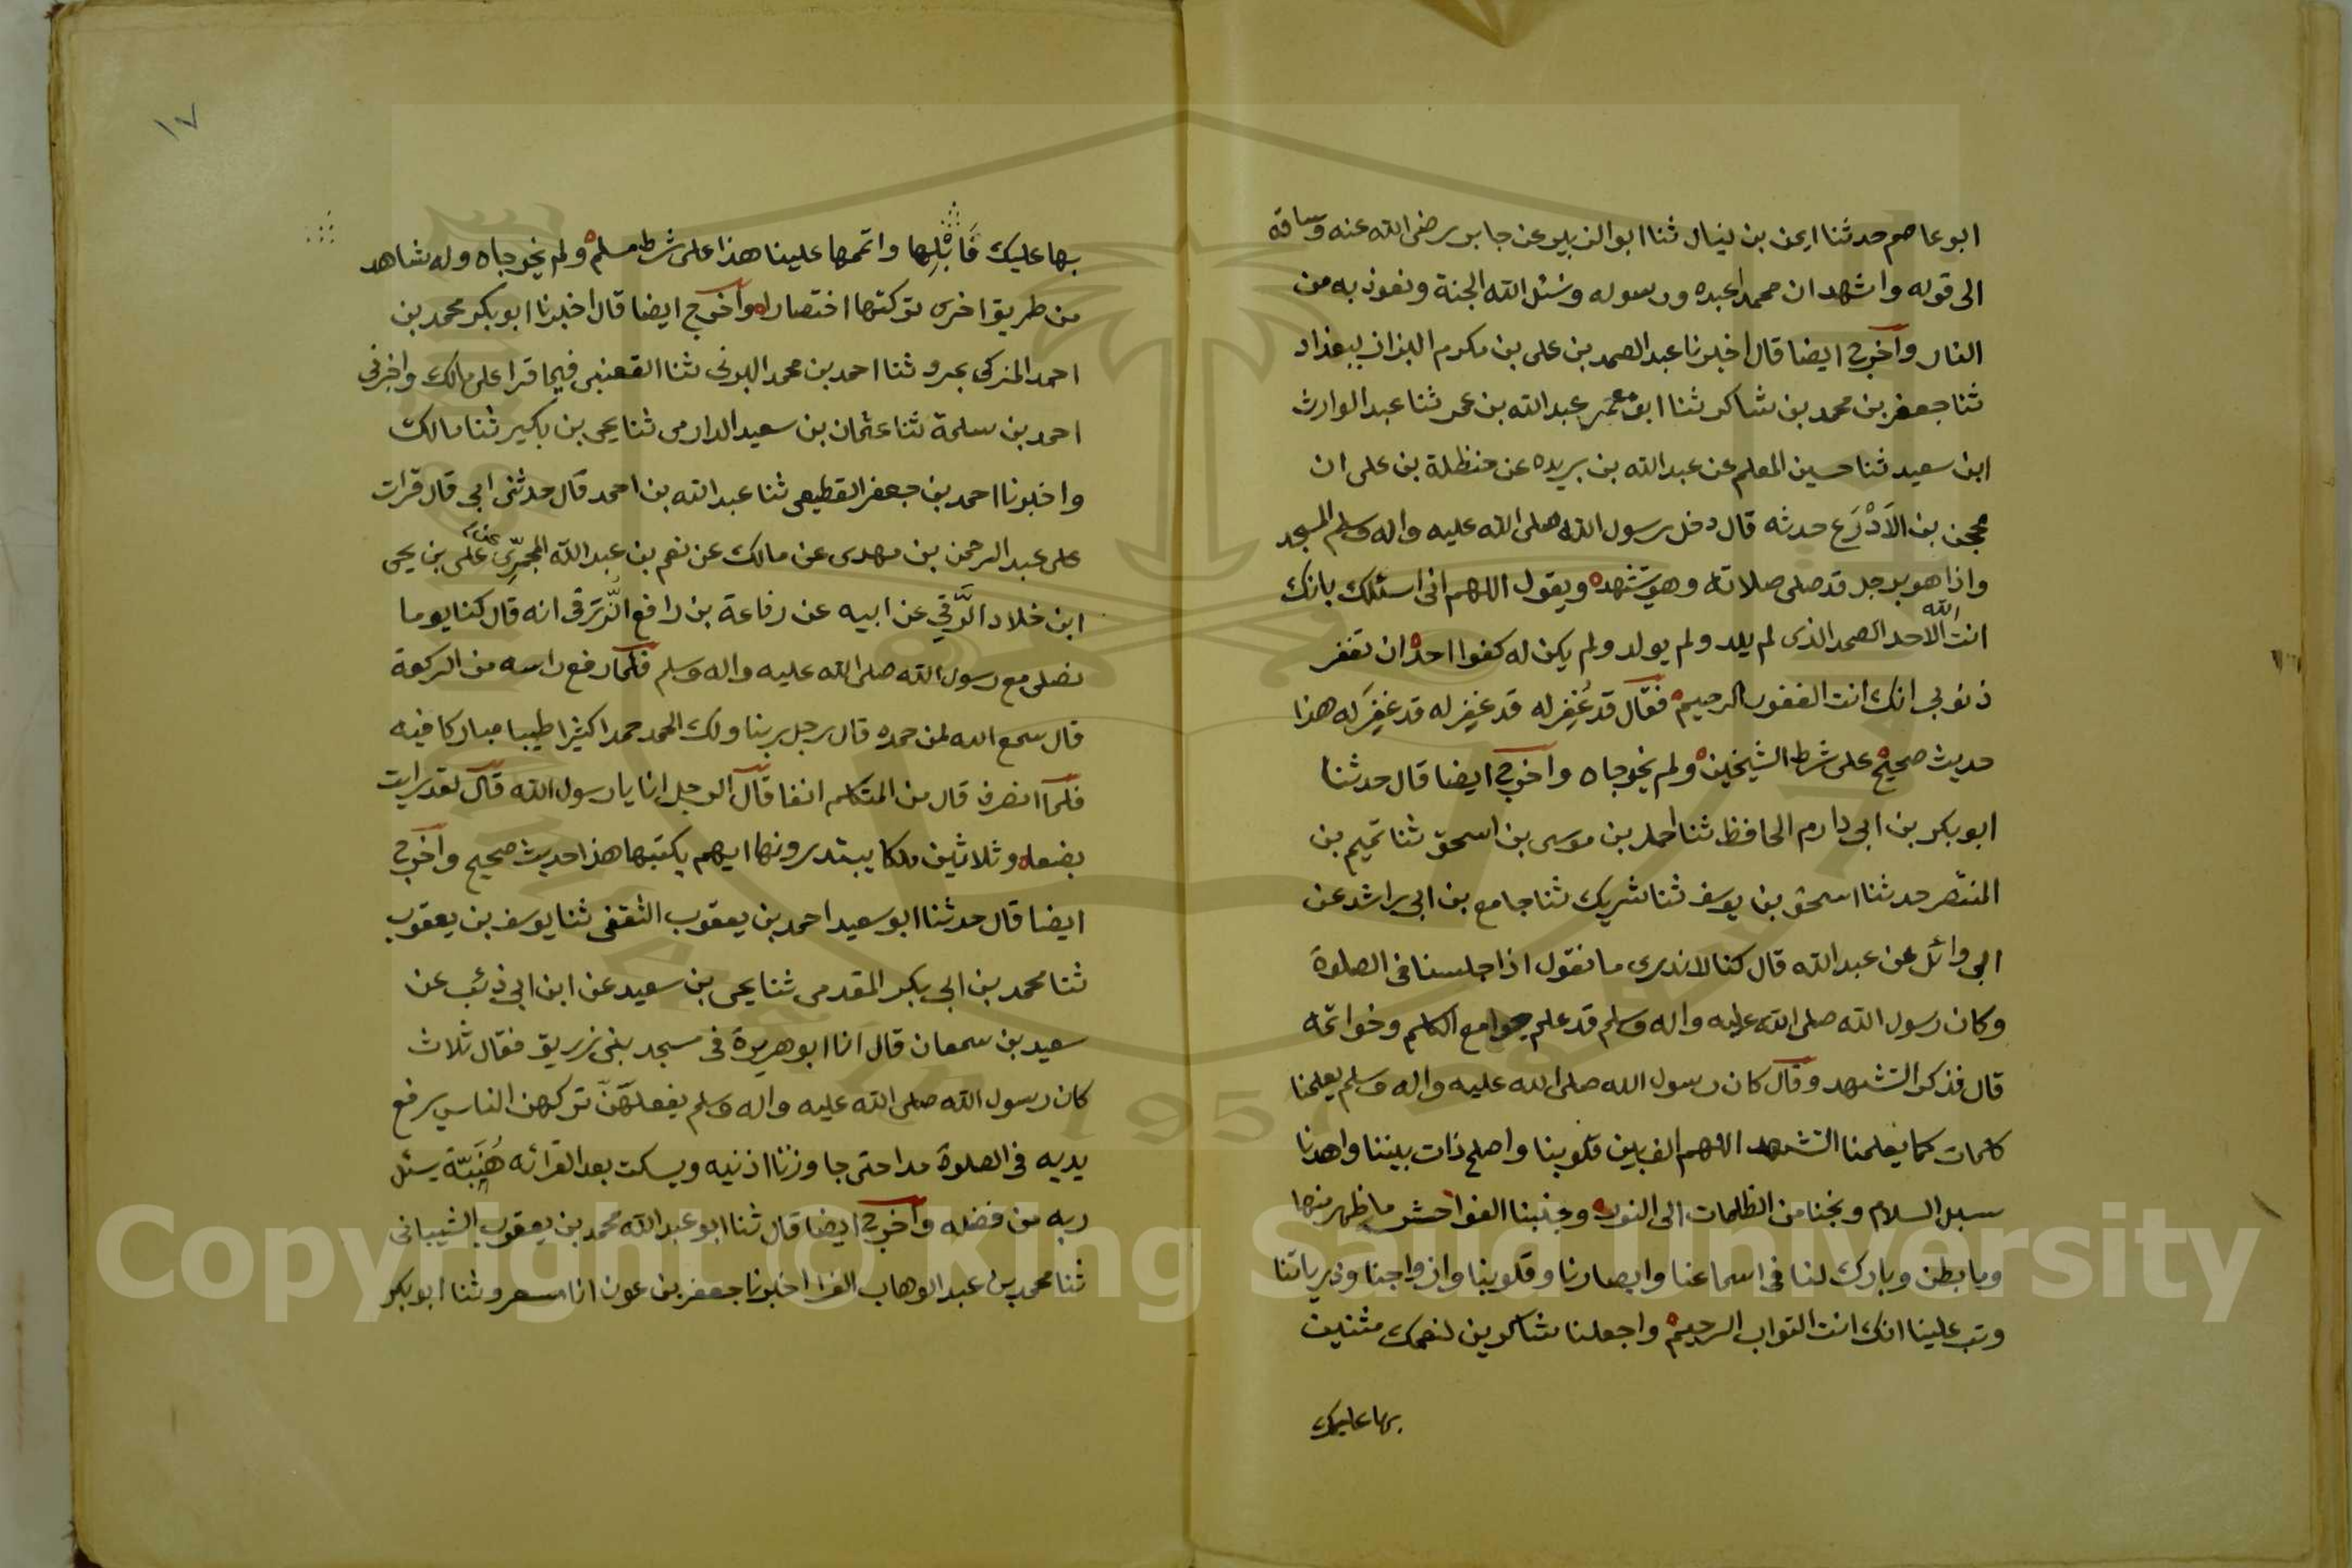 ابو عاصم حدثنا ايمن بن نيال ثنا ابو الزبير عن جابر رضى الله عنه وساقه
الى قوله واشهد ان محمدا عبده ورسوله ونسئل الله الجنة ونعوذ به من
النار وآخرج ايضا قال اخبرنا عبد الصمد بن على بن مكرم البزاز ببغداد
ثنا جعفر بن محمد بن شاكر ثنا ابو معمر عبد الله بن عمر ثنا عبد الوارث
ابن سعيد ثنا حسين المعلم عن عبد الله بن بريده عن حنظلة بن على ان
محجن بن الاَدْرَع حدثه قال دخل رسول الله صلى الله عليه واله وسلم المسجد
واذا هو برجل قد صلى صلاته وهو يتشهد ويقول اللهم انى اسئلك بانك
انت الله الاحد الصمد الذى لم يلد ولم يولد ولم يكن له كفوا احد ان تغفر
ذنوبى انك انت الغفور الرحيم فقال قد غُفِر له قد غفِر له قد غفِر له هذا
حديث صحيح على شرط الشيخين ولم يخرجاه وآخرج ايضا قال حدثنا
ابو بكر بن ابى دارم الحافظ ثنا احمد بن موسى بن اسحق ثنا تميم بن
المنتصر حدثنا اسحق بن يوسف ثنا شريك ثنا جامع بن ابى راشد عن
ابى وائل عن عبد الله قال كنا لا ندرى ما نقول اذا جلسنا فى الصلوة
وكان رسول الله صلى الله عليه واله وسلم قد علم جوامع الكلم وخواتمه
قال فذكر التشهد وقال كان رسول الله صلى الله عليه واله وسلم يعلمنا
كلمات كما يعلمنا التشهد اللهم الف بين قلوبنا واصلح ذات بيننا واهدنا
سبل السلام ونجنا من الظلمات الى النور وجنبنا الفواحش ما ظهر منها
وما بطن وبارك لنا فى اسماعنا وابصارنا وقلوبنا وازواجنا وذرياتنا
وتب علينا انك انت التواب الرحيم واجعلنا شاكرين لنعمك مثنين
بها عليك
١٧
بها عليك قَابْلِها واتمها علينا هذا على شرط مسلم ولم يخرجاه وله شاهد
من طريق اخرى تركتها اختصارا وآخرج ايضا قال اخبرنا ابو بكر محمد بن
احمد المزكى بمرو ثنا احمد بن محمد البرتى ثنا القعنبى فيما قرا على مالك واخبرنى
احمد بن سلمة ثنا عثمان بن سعيد الدارمى ثنا يحى بن بكير ثنا مالك
واخبرنا احمد بن جعفر القطيعى ثنا عبد الله بن احمد قال حدثنى ابى قال قرات
على عبد الرحمن بن مهدى عن مالك عن نعيم بن عبد الله المجمرّى عن على بن يحى
ابن خلاد الزَّرَقي عن ابيه عن رفاعة بن رافع الزُّرَقى انه قال كنا يوما
نصلى مع رسول الله صلى الله عليه واله وسلم فلما رفع راسه من الركعة
قال سمع الله لمن حمده قال رجل ربنا ولك الحمد حمدا كثيرا طيبا مباركا فيه
فلما انصرف قال من المتكلم انفا قال الرجل انا يا رسول الله قال لقد رايت
بضعا وثلاثين ملكا يبتدرونها ايهم يكتبها هذا حديث صحيح وآخرج
ايضا قال حدثنا ابو سعيد احمد بن يعقوب الثقفى ثنا يوسف بن يعقوب
ثنا محمد بن ابى بكر المقدمى ثنا يحى بن سعيد عن ابن ابى ذئب عن
سعيد بن سمعان قال انا ابو هريرة فى مسجد بنى زريق فقال ثلاث
كان رسول الله صلى الله عليه واله وسلم يفعلهنّ تركهن الناس يرفع
يديه فى الصلوة مدا حتى جاوزنا اذنيه ويسكت بعد القرائه هُنَيَّة يسئل
ربه من فضله وآخرج ايضا قال ثنا ابو عبد الله محمد بن يعقوب الشيبانى
ثنا محمد بن عبد الوهاب الفرا اخبرنا جعفر بن عون انا مسعر وثنا ابو بكر
Copyright © King Saud University
1957